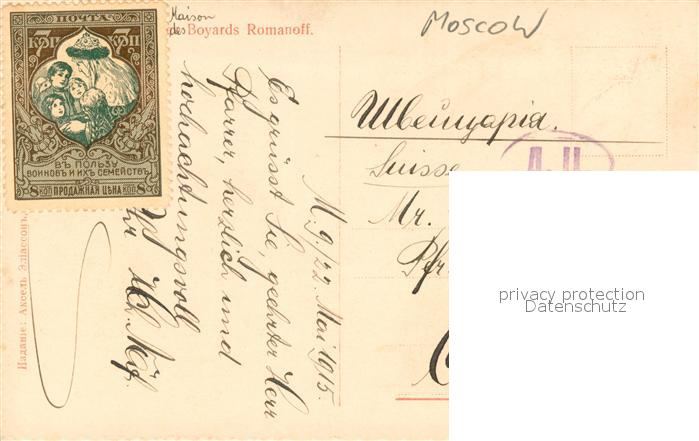 ПОЧТА
7 КОП 7 КОП
ВЪ ПОЛЬЗУ
ВОИНОВЪ И ИХЪ СЕМЕЙСТВЪ
8 КОП ПРОДАЖНАЯ ЦѢНА КОП 8
Maison
des Boyards Romanoff.
MOSCOW
M. 9./22. Mai 1915.
Es grüsst Sie, geehrter Herr
Pfarrer, herzlich und
hochachtungsvoll
Ihr
Изданіе: Аксель Эліассонъ,
Швейцарія.
Suisse
Mr.
Pfr
privacy protection
Datenschutz